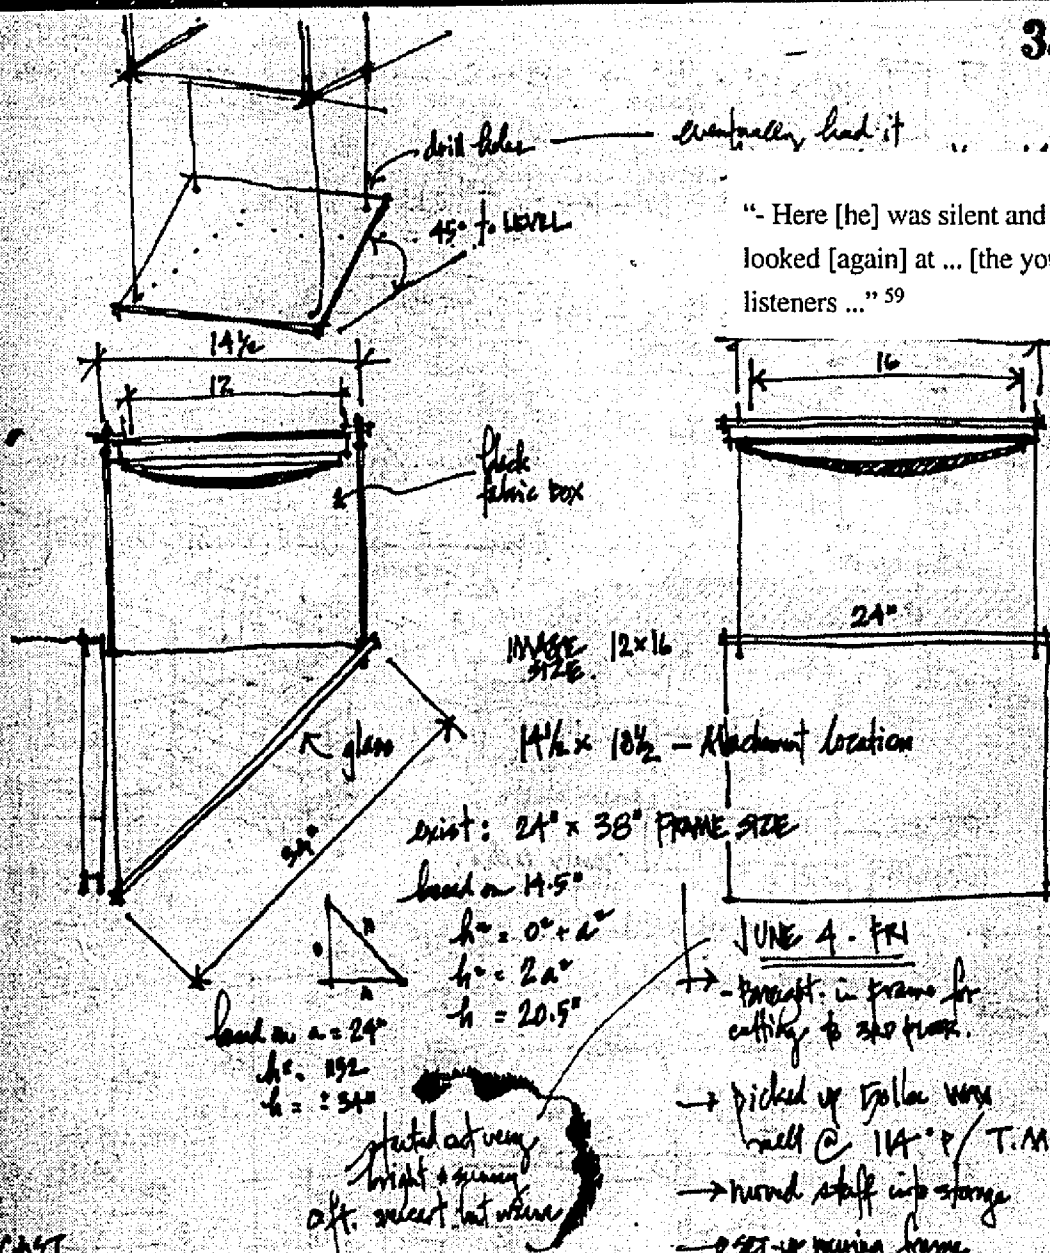 3
drill holes — eventually had it
45° to LEVEL
"- Here [he] was silent and
looked [again] at ... [the you
listeners ..." 59
14½
12
16
black
fabric box
24"
IMAGE 12x16
SIZE.
14½ x 18½ - Attachment location
glass
34"
exist: 24" x 38" FRAME SIZE
based on 14.5"
h² = o² + a²
h² = 2a²
h = 20.5"
A
A
based on a = 24"
h² = 1152
h = ± 34"
JUNE 4 - FRI
- Brought in frame for
cutting to 3RD floor.
→ picked up
@ 114 °P / T.M
→ moved stuff into storage
→ set-up
started out very
bright & sunny
aft. but warm